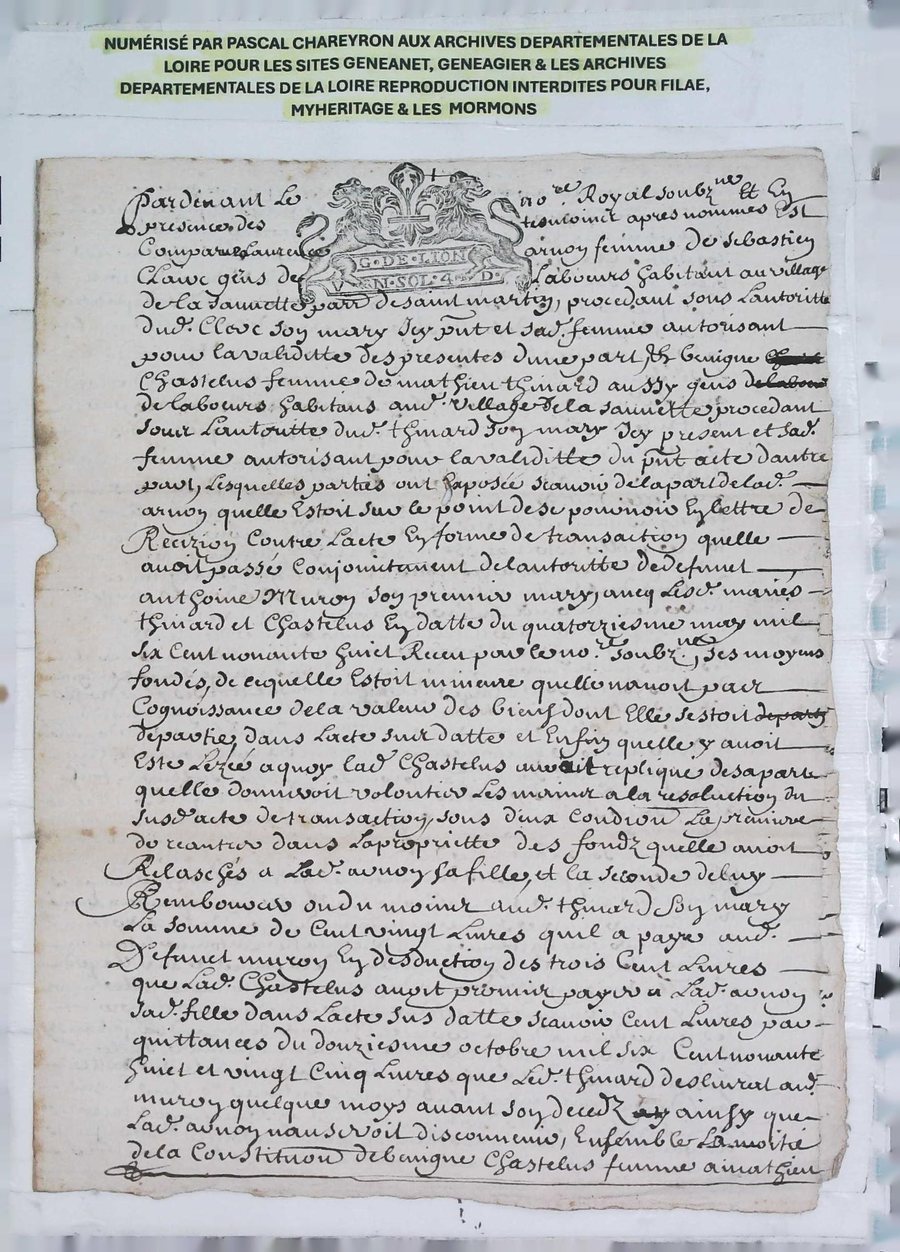 NUMÉRISÉ PAR PASCAL CHAREYRON AUX ARCHIVES DEPARTEMENTALES DE LA
LOIRE POUR LES SITES GENEANET, GENEAGIER & LES ARCHIVES
DEPARTEMENTALES DE LA LOIRE REPRODUCTION INTERDITES POUR FILAE,
MYHERITAGE & LES MORMONS
G·DE·LION
V N·SOL·4 D·
Pardevant Le no.re Royal soubz.ne Et En
presences des tesmoinct apres nommés Est
Comparue Laurence arnon femme de sebastien
Clauc gens de Labours habitant au village
de la sauuette parr de saint martin, procedant sous Lautoritte
dud. Clerc son mary Icy pnt et sad. femme autorisant
pour la validitte des presentes dune part Et benigne
Chastelus femme de mathieu thinard aussy gens
de labours habitans aud. village de la sauuette procedant
sour Lautoritte dud. thinard son mary Icy present et sad.
femme autorisant pour la validitte du pnt acte dautre
part, Lesquelles parties ont Exposée scauoir de la part de lad.
arnon quelle Estoit sur le point de se pouruoir En lettre de
Recizion Contre Lacte En forme de transaction quelle
auoit passé Conjointement de lautoritte de defunct
anthoine Muron son premier mary, aueq Lesd. mariés
thinard et Chastelus En datte du quatorziesme may mil
six Cent nonante huict Receu par le no.re soubz.ne, ses moyens
fondés, de ce quelle Estoit mineure quelle nauoit pas
Cognoissance de la valeur des biens dont Elle sestoit
departie, dans Lacte sus datte et Enfin quelle y auoit
Este Lezée a quoy lad. Chastelus auroit repliqué de sa part
quelle donneroit volontier Les mains a la resolution du
susd. acte de transaction, sous deux Condion La premiere
de reantrer dans La propriette des fondz quelle auoit
Relaschés a Lad. arnon sa fille, et la seconde de luy
Rembourser ou du moins aud. thinard son mary
La somme de Cent vingt Liures quil a payé aud.
Defunct muron En desduction des trois Cent Liures
que Lad. Chastelus auoit promis payer a Lad. arnon
sad. fille dans Lacte sus datte scauoir Cent Liures par
quittances du douziesme octobre mil six Cent nonante
huict et vingt Cinq Liures que Led. thinard deslivrat aud.
muron quelque moys auant son decedz ainsy que
Lad. arnon nan seroit disconuenir, Ensemble La moitié
de la Constituon de benigne Chastelus femme a mathieu